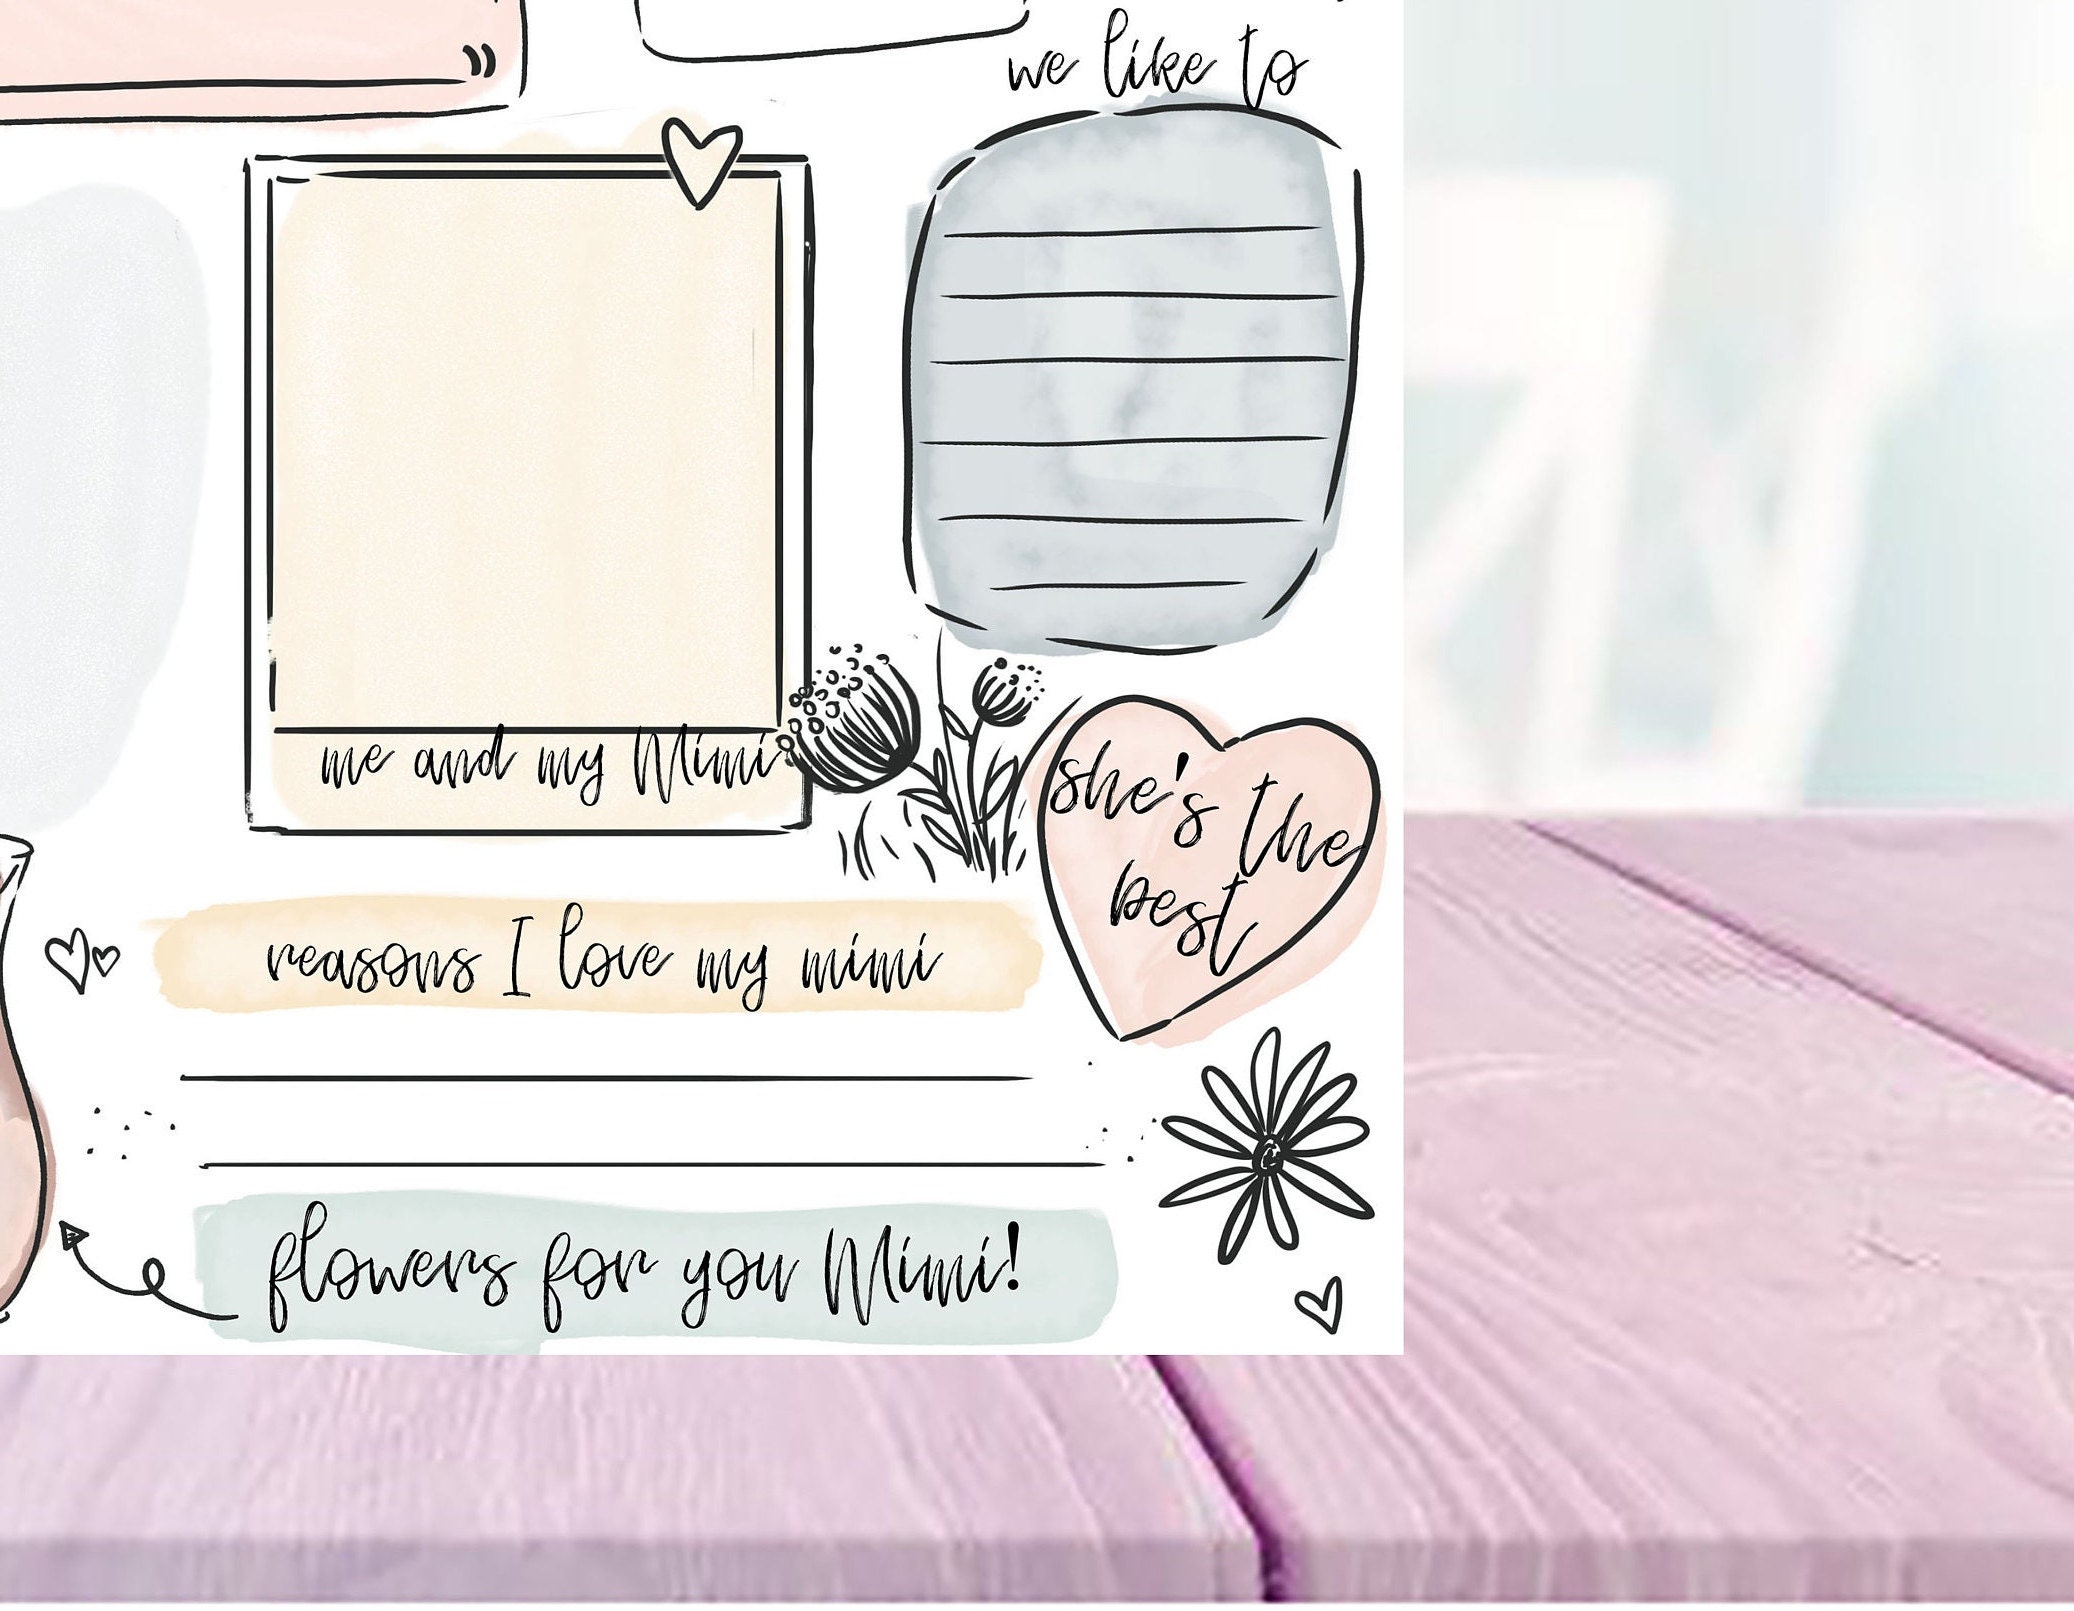 ”
we like to
me and my Mimi
she's the
best
reasons I love my mimi
flowers for you Mimi!